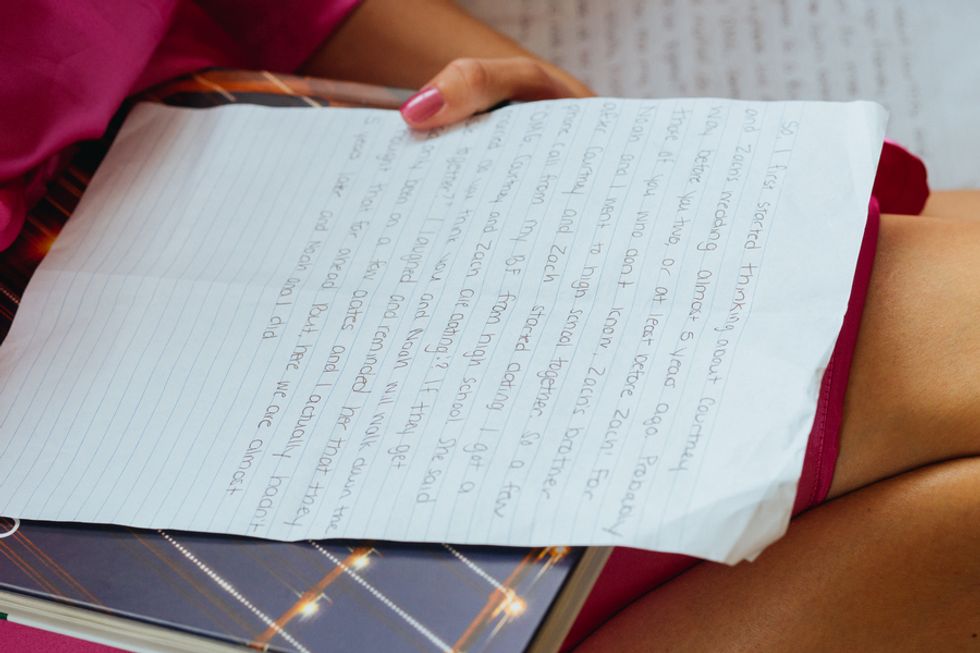 So I first started thinking about Courtney
and Zach's wedding almost 5 years ago. Probably
way before you two, or at least before Zach! For
those of you who don't know, Zach's brother
Noah and I went to high school together. So a few
after Courtney and Zach started dating I got a
phone call from my BF from high school. She said
OMG, Courtney and Zach are dating!? If they get
do you think you and Noah will walk down the
together? I laughed and reminded her that they
only been on a few dates and I actually hadn't
thought that far ahead. But, here we are almost
5 years later and Noah and I did